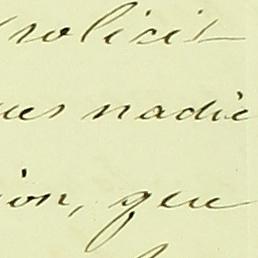 solicit
ues nadie
ion, que